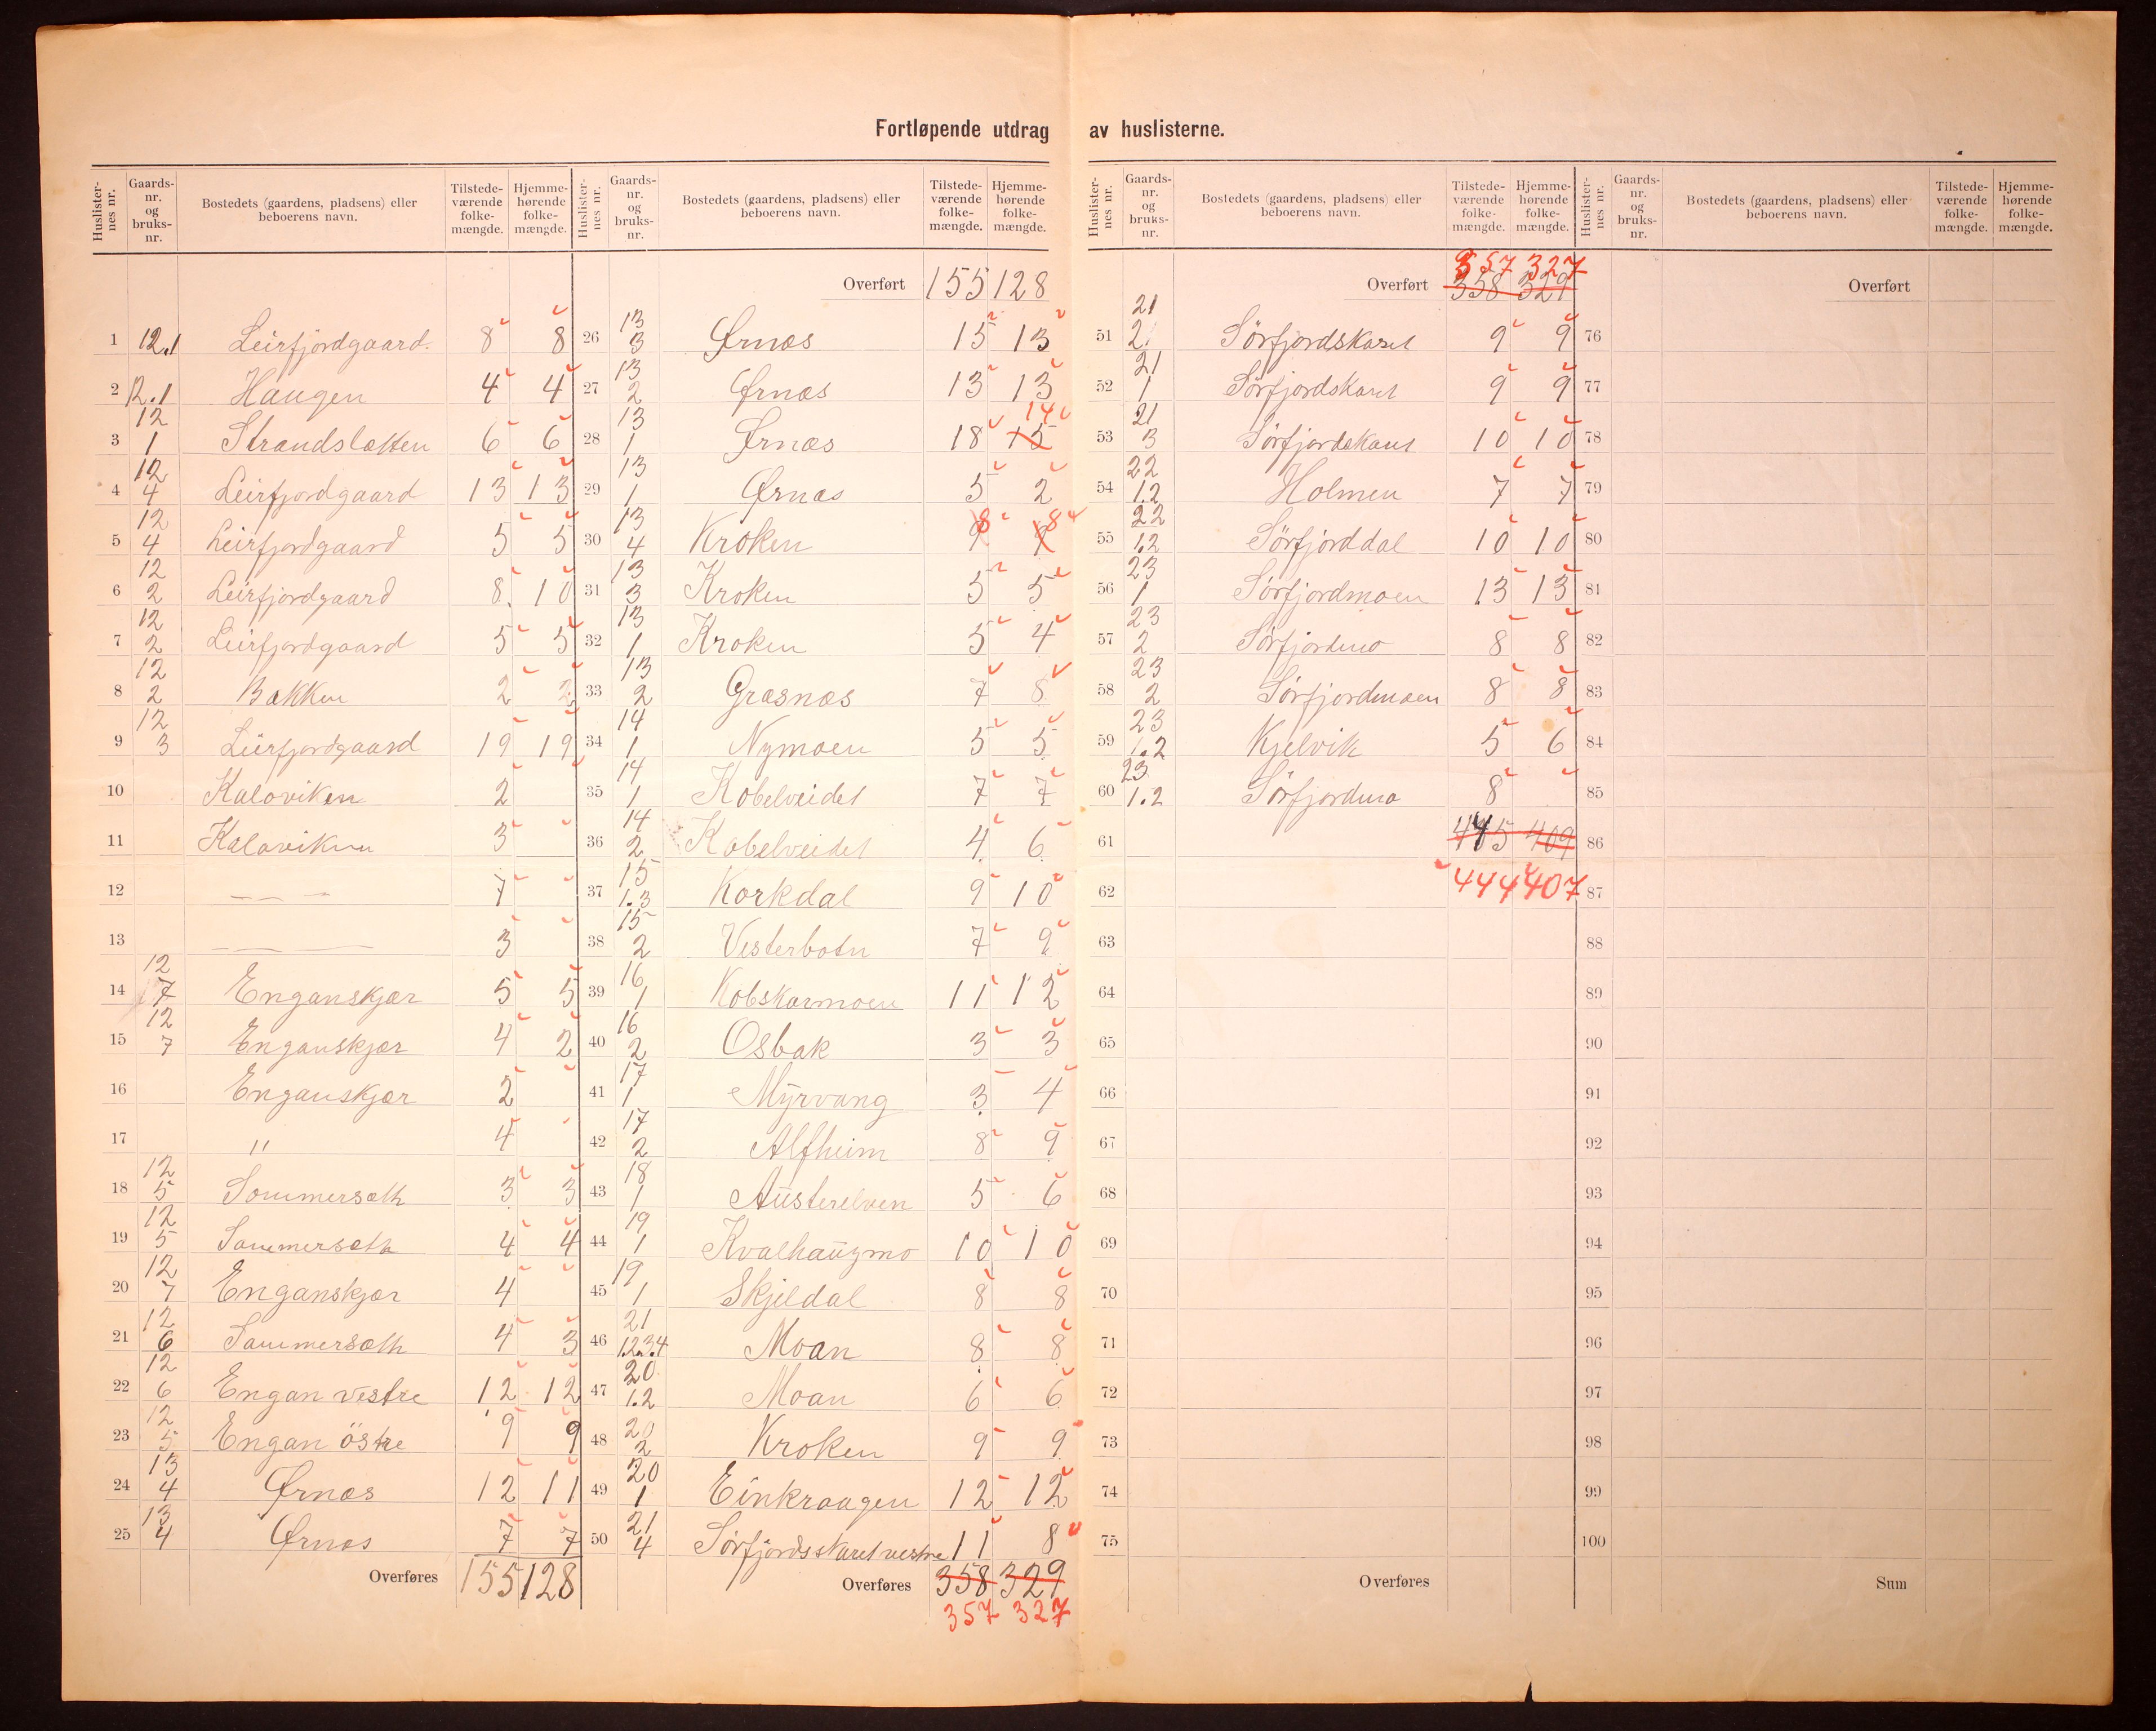 Fortløpende utdrag av huslisterne.
Huslister-nes nr. | Gaards-nr. og bruks-nr. | Bostedets (gaardens, pladsens) eller beboerens navn. | Tilstede-værende folke-mængde. | Hjemme-hørende folke-mængde.
1 12.1 Leirfjordgaard 8 8
2 12.1 Haugen 4 4
3 12 1 Strandslætten 6 6
4 12 4 Leirfjordgaard 13 13
5 12 4 Leirfjordgaard 5 5
6 12 2 Leirfjordgaard 8 10
7 12 2 Leirfjordgaard 5 5
8 12 2 Bakken 2 2
9 12 3 Leirfjordgaard 19 19
10 Kaloviken 2
11 Kaloviken 3
12 — — — 7
13 — — — 3
14 12 7 Enganskjær 5 5
15 12 7 Enganskjær 4 2
16 Enganskjær 2
17 " 4
18 12 5 Sommersæth 3 3
19 12 5 Sommersæth 4 4
20 12 7 Enganskjær 4
21 12 6 Sommersæth 4 3
22 12 6 Engan vestre 12 12
23 12 5 Engan östre 9 9
24 13 4 Ørnæs 12 11
25 13 4 Ørnæs 7 7
Overføres 155 128
Huslister-nes nr. | Gaards-nr. og bruks-nr. | Bostedets (gaardens, pladsens) eller beboerens navn. | Tilstede-værende folke-mængde. | Hjemme-hørende folke-mængde.
Overført 155 128
26 13 3 Ørnæs 15 13
27 13 2 Ørnæs 13 13
28 13 1 Ørnæs 18 15 14
29 13 1 Ørnæs 5 2
30 13 4 Kroken 9 8 9 8
31 13 3 Kroken 5 5
32 13 1 Kroken 5 4
33 13 2 Græsnæs 7 8
34 14 1 Nymoen 5 5
35 14 1 Kobelveidet 7 7
36 14 2 Kobelveidet 4 6
37 15 1.3 Korkdal 9 10
38 15 2 Vesterbotn 7 9
39 16 1 Kobskarmoen 11 12
40 16 2 Osbak 3 3
41 17 1 Myrvang 3 4
42 17 2 Alfheim 8 9
43 18 1 Austerelven 5 6
44 19 1 Kvalhaugmo 10 10
45 19 1 Skjeldal 8 8
46 21 1.2.3.4 Moan 8 8
47 20 1.2 Moan 6 6
48 20 2 Kroken 9 9
49 20 1 Einkraagen 12 12
50 21 4 Sörfjordsskaret vestre 11 8
Overføres 358 329
357 327
Huslister-nes nr. | Gaards-nr. og bruks-nr. | Bostedets (gaardens, pladsens) eller beboerens navn. | Tilstede-værende folke-mængde. | Hjemme-hørende folke-mængde.
357 327
Overført 358 329
51 21 2 Sörfjordskaret 9 9
52 21 1 Sörfjordskaret 9 9
53 21 3 Sörfjordskaret 10 10
54 22 1.2 Holmen 7 7
55 22 1.2 Sörfjorddal 10 10
56 23 1 Sörfjordmoen 13 13
57 23 2 Sörfjordmo 8 8
58 23 2 Sörfjordmoen 8 8
59 23 1.2 Kjelvik 5 6
60 23 1.2 Sörfjordmo 8
61 445 409
62 444 407
63
64
65
66
67
68
69
70
71
72
73
74
75
Overføres
Huslister-nes nr. | Gaards-nr. og bruks-nr. | Bostedets (gaardens, pladsens) eller beboerens navn. | Tilstede-værende folke-mængde. | Hjemme-hørende folke-mængde.
Overført
76
77
78
79
80
81
82
83
84
85
86
87
88
89
90
91
92
93
94
95
96
97
98
99
100
Sum